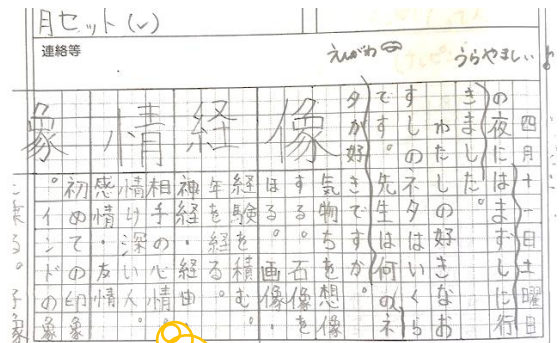 月セット
連絡等
えんがわ
うらやましい
四月十一日土曜日
の夜にはまずしに行
きました。
わたしの好きなお
すしのネタはいくら
です。先生は何のネ
タが好きですか。
像
気持ちを想像
する。石像を
ほる。画像・
経
経験を積む。
年を経る。
神経・経由
情
相手の心情
情け深い人。
感情・友情
象
初めての印象
。インドの象
に乗る。子象